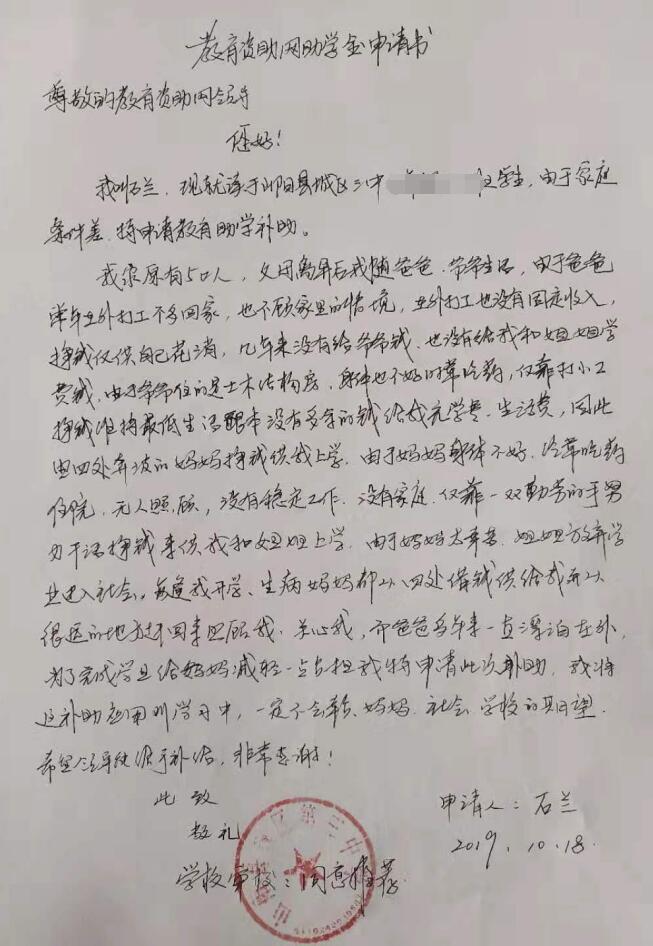 教育资助网助学金申请书
尊敬的教育资助网领导
您好!
我叫石兰,现就读于山阳县城区三中 学生,由于家庭
条件差,特申请教育助学补助。
我家原有5口人,父母离异后我随爸爸、爷爷生活,由于爸爸
常年在外打工不多回家,也不顾家里的情境,在外打工也没有固定收入,
挣钱仅供自己花消,几年来没有给爷爷钱、也没有给我和姐姐学
费钱,由于爷爷住的是土木结构房,身体也不好时常吃药,仅靠打小工
挣钱维持最低生活跟本没有多余的钱给我充学费、生活费,因此
由四处奔波的妈妈挣钱供我上学,由于妈妈身体不好,经常吃药
住院,无人照顾,没有稳定工作、没有家庭,仅靠一双勤劳的手努
力干活挣钱来供我和姐姐上学,由于妈妈太辛苦,姐姐放弃学
业进入社会。每逢我开学、生病妈妈都从四处借钱供给我再从
很远的地方回来照顾我、关心我,而爸爸多年来一直漂泊在外,
为了完成学业给妈妈减轻一点负担我特申请此次补助,我将
这补助应用到学习中,一定不会辜负妈妈、社会、学校的期望。
希望领导能给予补给,非常感谢!
此致
敬礼
申请人:石兰
2019.10.18.
学校审核:同意推荐